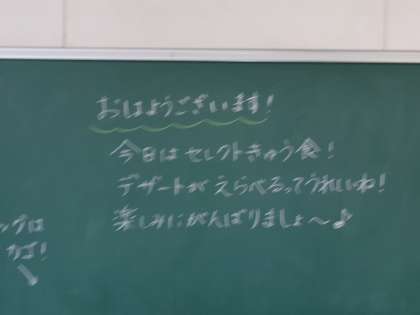 おはようございます!
今日はセレクトきゅう食!
デザートがえらべるってうれしいね!
楽しみにがんばりましょ〜♪
ップは
カゴ!